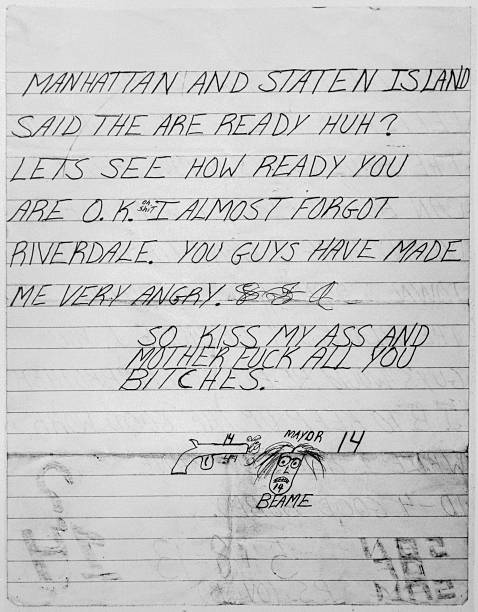 MANHATTAN AND STATEN ISLAND
SAID THE ARE READY HUH?
LETS SEE HOW READY YOU
ARE O.K. OH SHIT I ALMOST FORGOT
RIVERDALE. YOU GUYS HAVE MADE
ME VERY ANGRY.
SO KISS MY ASS AND
MOTHER FUCK ALL YOU
BITCHES.
14 MAYOR 14
44
14
BEAME